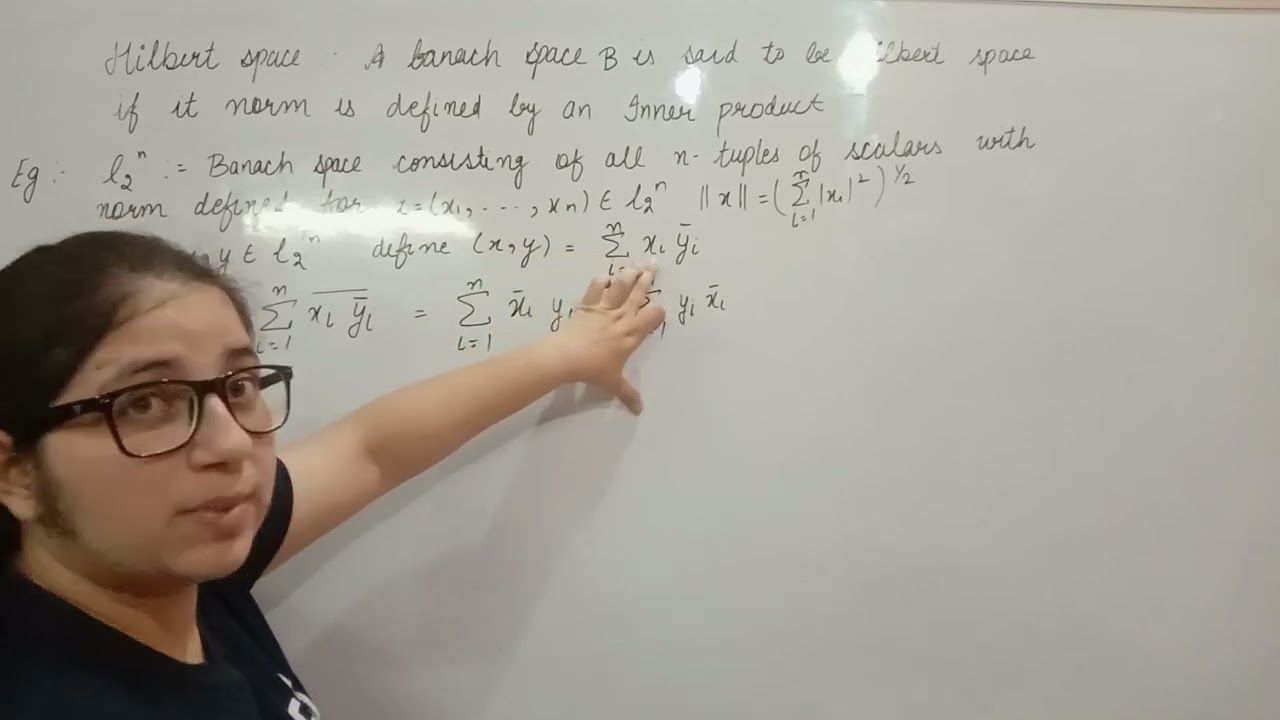 Hilbert space . A banach space B is said to be Hilbert space
if it norm is defined by an Inner product
Eg :- l₂ⁿ := Banach space consisting of all n-tuples of scalars with
norm defined for x=(x₁, ..., xₙ) ∈ l₂ⁿ ||x|| = (∑ᵢ₌₁ⁿ |xᵢ|²)^1/2
y ∈ l₂ⁿ define (x,y) = ∑ⁿ xᵢ ȳᵢ
∑ᵢ₌₁ⁿ \overline{xᵢ ȳᵢ} = ∑ᵢ₌₁ⁿ x̄ᵢ yᵢ yᵢ x̄ᵢ